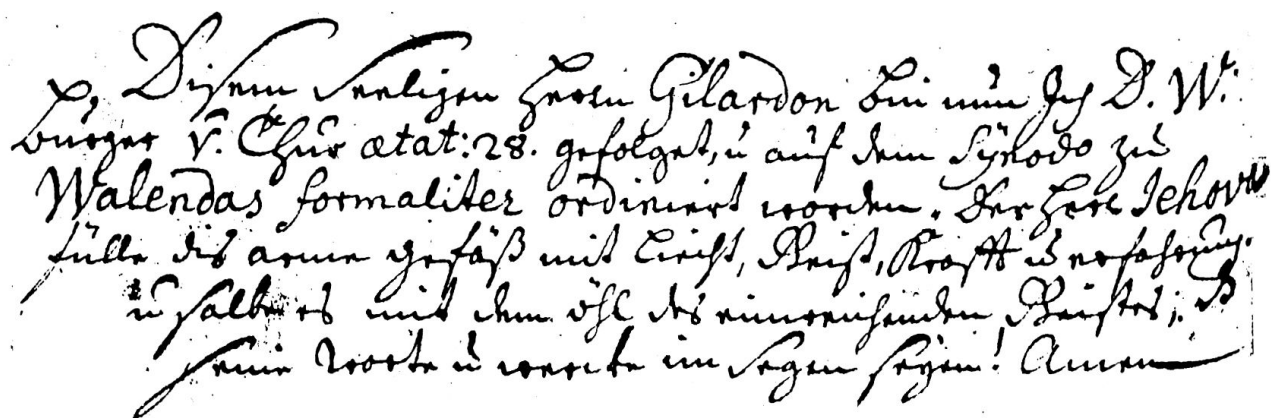 Disem Seeligen Herrn Gilardon bin nun Ich D. W.
burger v. Chur ætat: 28. gefolget, ū auf dem Sÿnodo zu
Walendas formaliter ordiniert worden. Der Herr Jehova
fülle dis arme gefäß mit Liecht, Geist, Krafft ū erfahrung.
ū salbe es mit dem öhl des Geistes;
seine worte ū wercke im Segen seyen! Amen